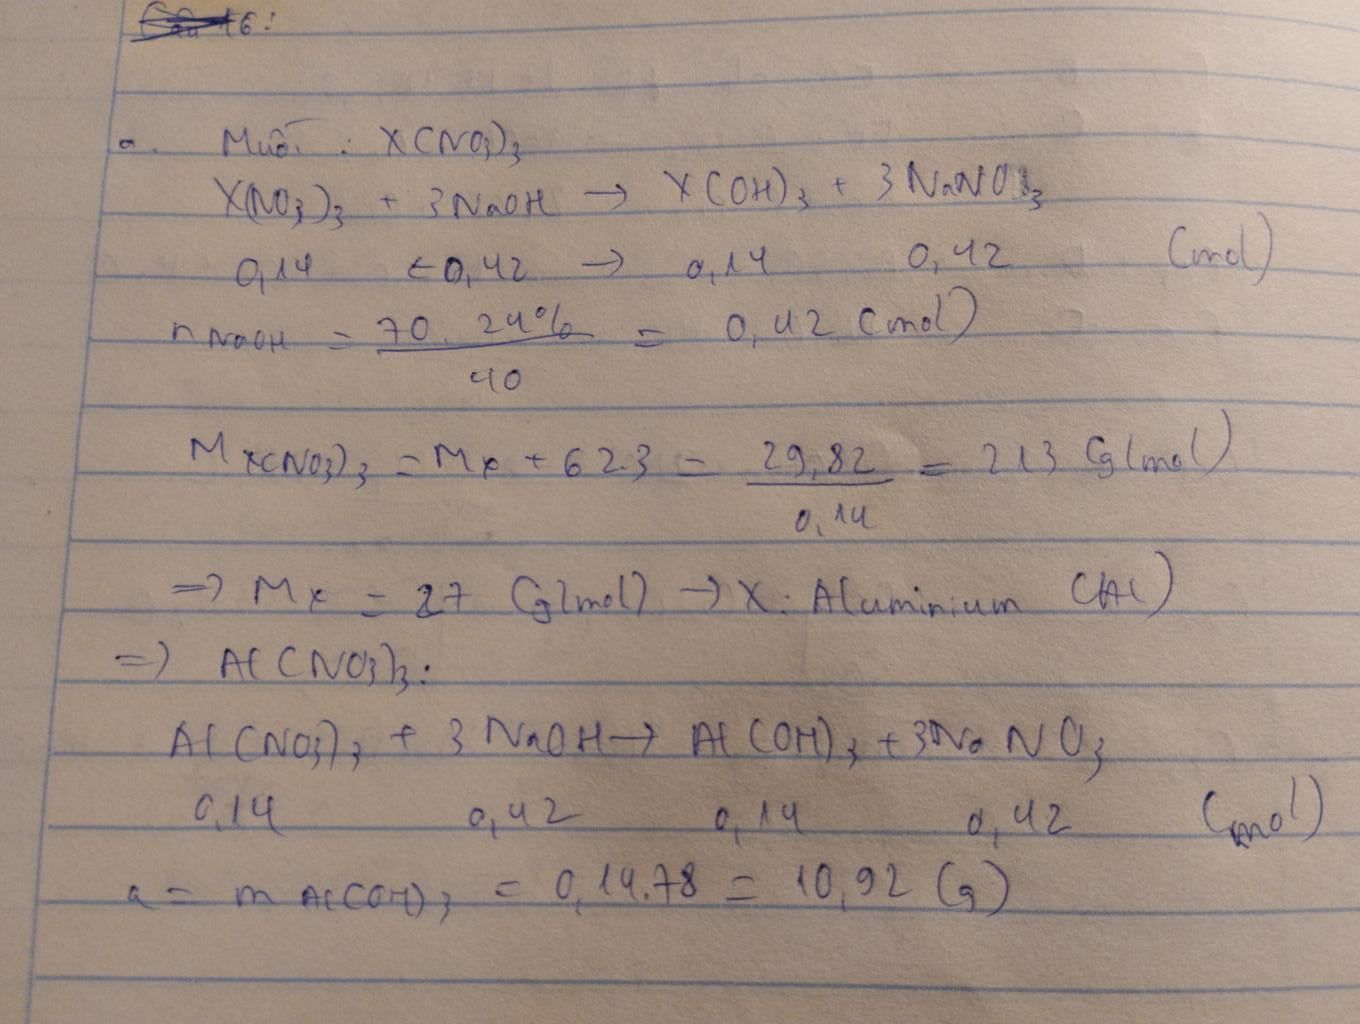 6:
a. Muối : X(NO3)3
X(NO3)3 + 3NaOH → X(OH)3 + 3NaNO3
0,14 ← 0,42 → 0,14 0,42 (mol)
n NaOH = 70.24% / 40 = 0,42 (mol)
M X(NO3)3 = Mx + 62.3 = 29,82 / 0,14 = 213 (g/mol)
=> Mx = 27 (g/mol) → X: Aluminium (Al)
=> Al(NO3)3:
Al(NO3)3 + 3NaOH → Al(OH)3 + 3NaNO3
0,14 0,42 0,14 0,42 (mol)
a = m Al(OH)3 = 0,14.78 = 10,92 (g)